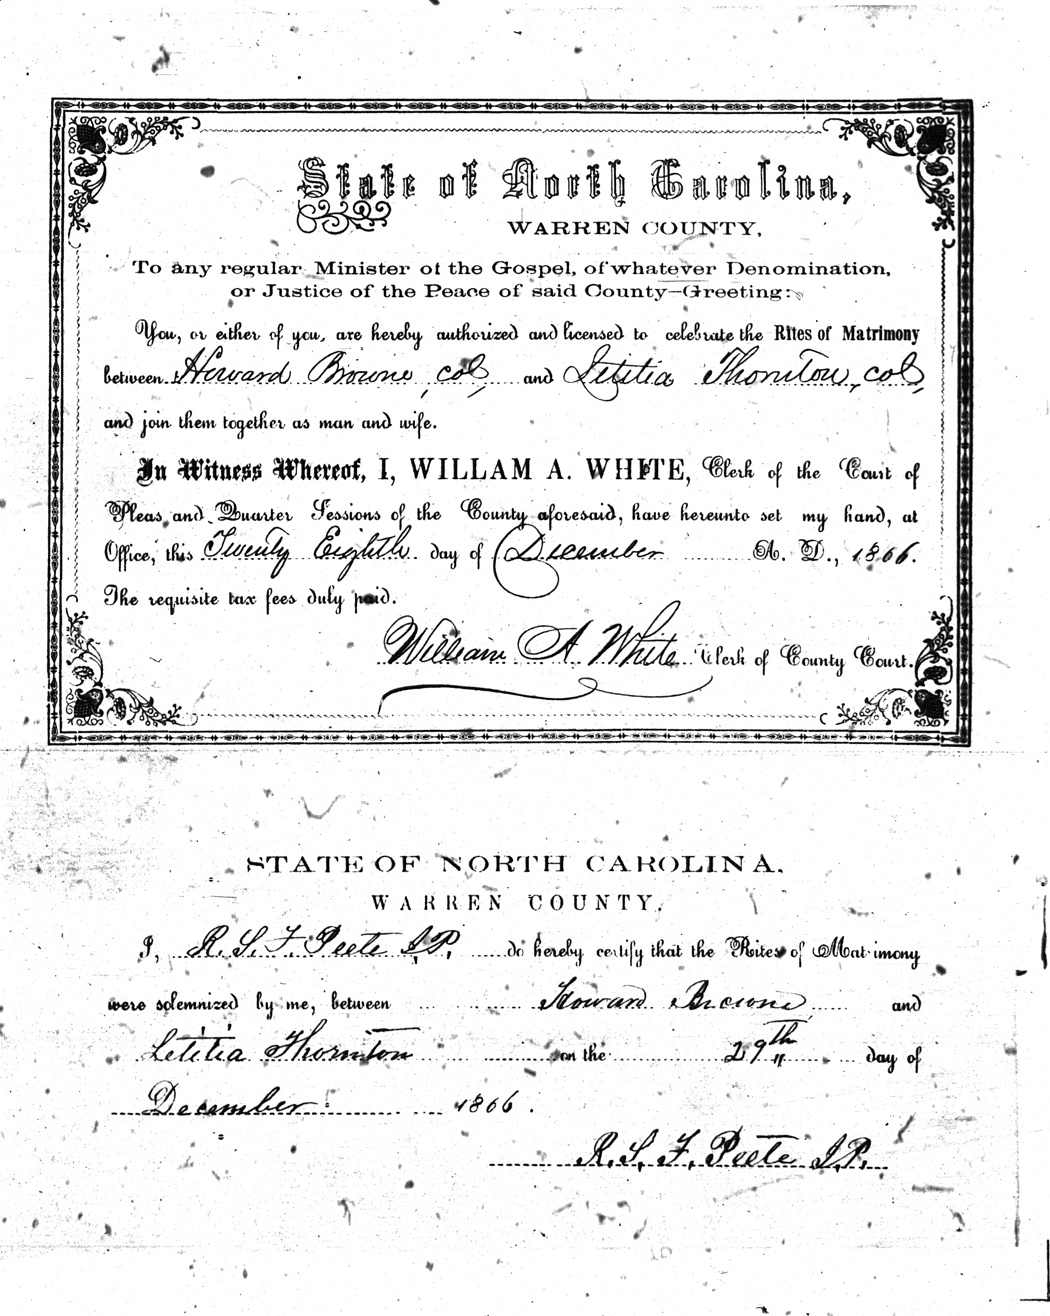 State of North Carolina,
WARREN COUNTY,
To any regular Minister of the Gospel, of whatever Denomination,
or Justice of the Peace of said County—Greeting:
You, or either of you, are hereby authorized and licensed to celebrate the Rites of Matrimony
between Howard Browne, col, and Letitia Thornton, col,
and join them together as man and wife.
In Witness Whereof, I, WILLAM A. WHITE, Clerk of the Court of
Pleas and Quarter Sessions of the County aforesaid, have hereunto set my hand, at
Office, this Twenty Eighth day of December A. D., 1866.
The requisite tax fees duly paid.
William A White Clerk of County Court.
STATE OF NORTH CAROLINA.
WARREN COUNTY.
I, R. S. F. Peete J.P. do hereby certify that the Rites of Matrimony
were solemnized by me, between Howard Browne and
Letitia Thornton on the 29th day of
December 1866.
R. S. F. Peete J.P.